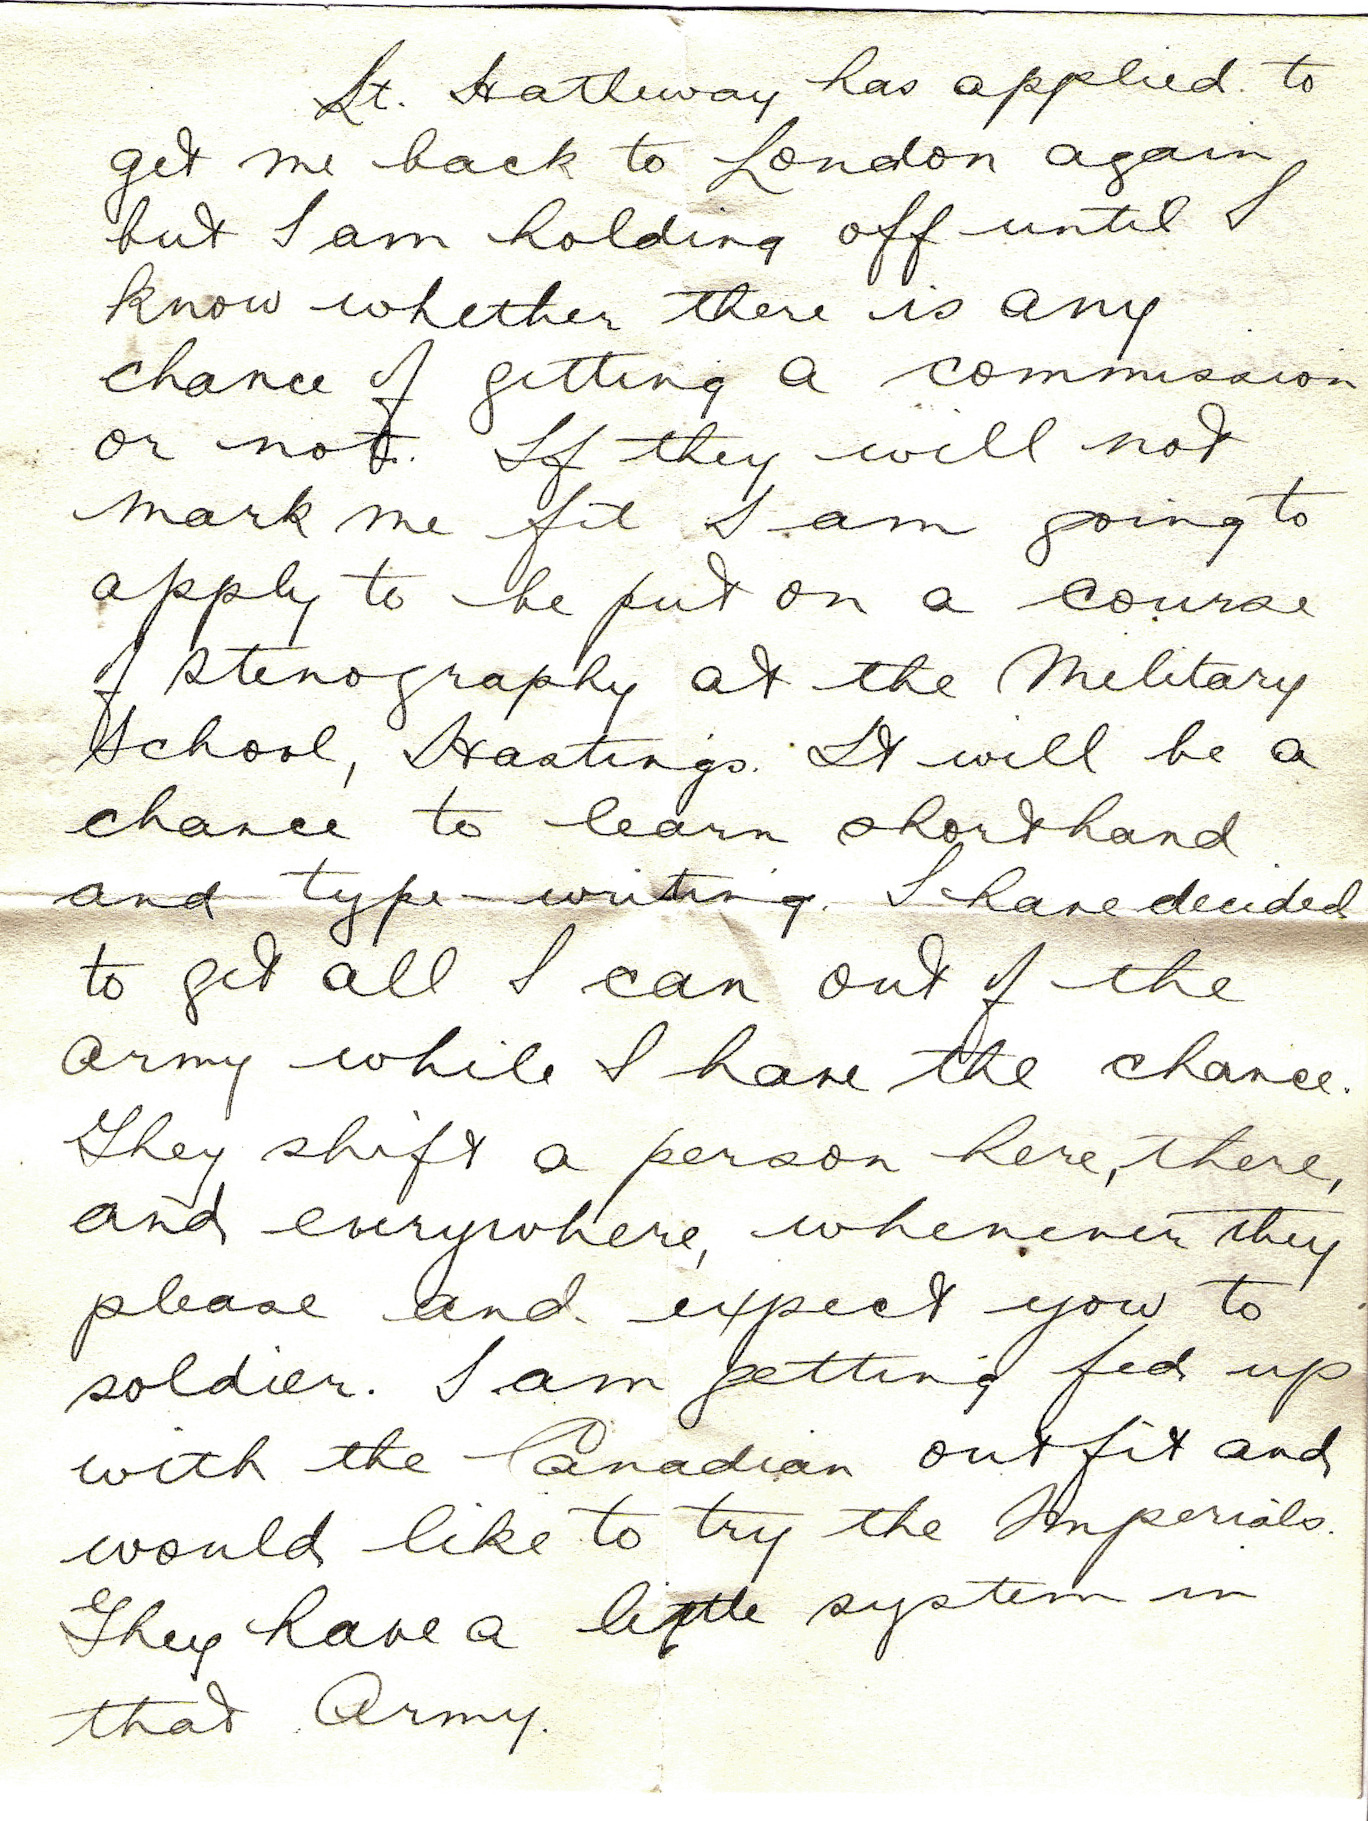 Lt. Hatheway has applied to
get me back to London again,
but I am holding off until I
know whether there is any
chance of getting a commission
or not. If they will not
mark me fit I am going to
apply to be put on a course
of stenography at the Military
School, Hastings. It will be a
chance to learn shorthand
and type-writing. I have decided
to get all I can out of the
army while I have the chance.
They shift a person here, there,
and everywhere, whenever they
please and expect you to
soldier. I am getting fed up
with the Canadian outfit and
would like to try the Imperials.
They have a little system in
that Army.